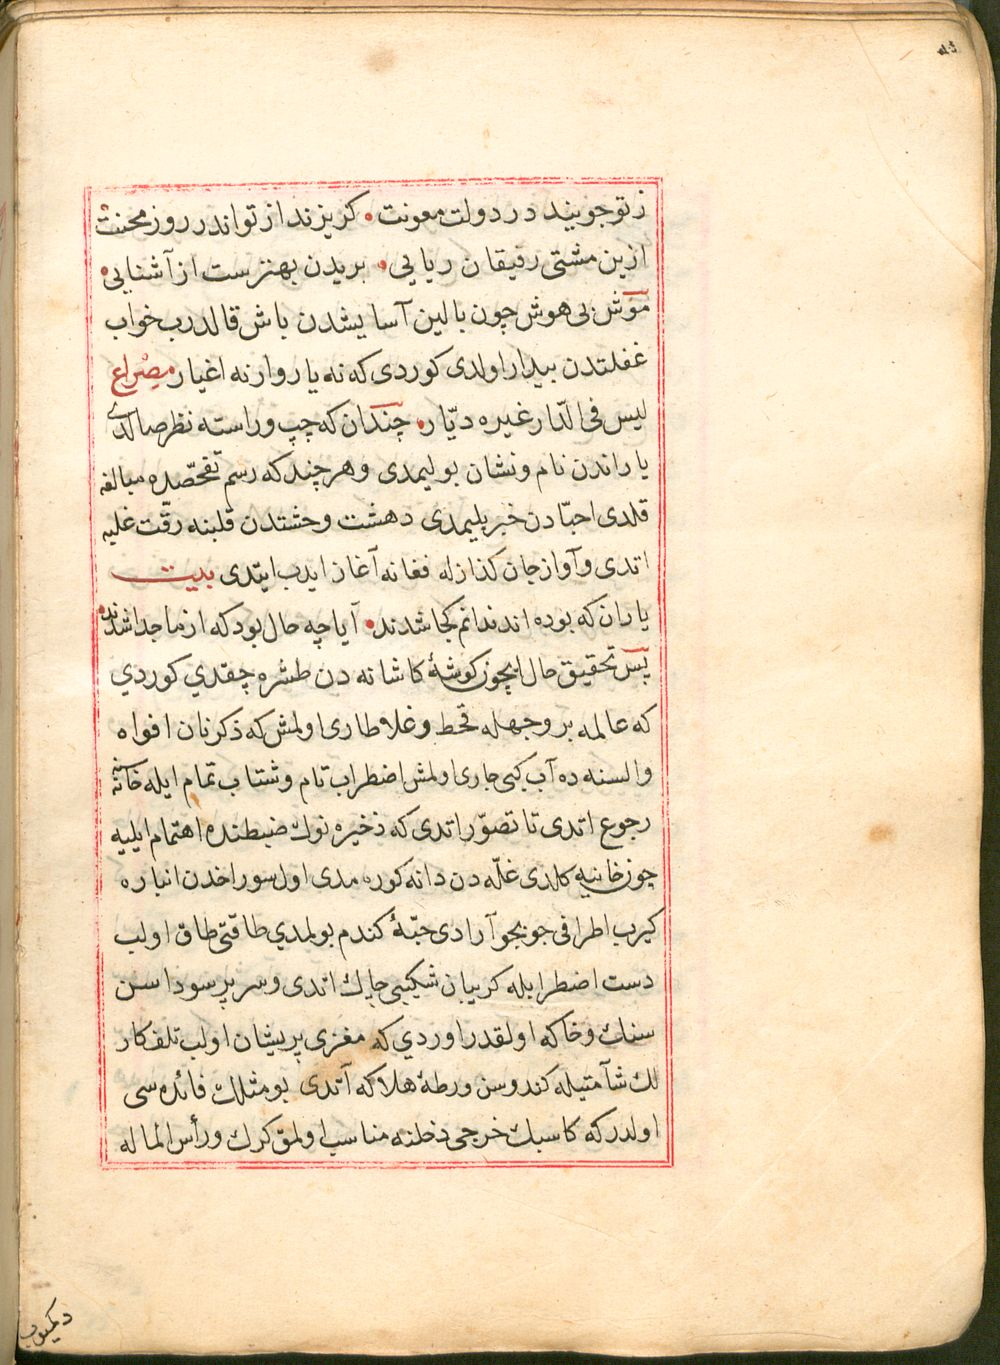 ز تو جویند در دولت معونت • کریزند از تو اندر روز محنت
ازین مشتی رفیقان ریایی • بریدن بهترست از آشنایی •
موش بی هوش چون بالین آسایشدن باش قالدرب خواب
غفلتدن بیدار اولدی کوردی که نه یار وار نه اغیار مصراع
لیس فی الدّار غیره دیّار • چندان که چپ و راسته نظر صالدی
یاراندن نام و نشان بولیمدی و هر چند که رسم تفحّصده مبالغه
قلدی احبّادن خبر بلیمدی دهشت وحشتدن قلبنه رقّت غلبه
اتدی و آواز جان کدازله فغانه آغاز ایدب ایتدی بیت
یاران که بوده اند ندانم کجا شدند • آیا چه حال بود که از ما جدا شدند
پس تحقیق حال ایچون کوشۀ کاشانه دن طشره چقدی کوردی
که عالمه بر وجهله قحط و غلا طاری اولمش که ذکر نان افواه
و السنه ده آب کبی جاری اولمش اضطراب تام و شتاب تمام ایله خانه سنه
رجوع اتدی تا تصوّر اتدی که ذخیره نوک ضبطنده اهتمام ایلیه
چون خانه یه کلدی غلّه دن دانه کوره مدی اول سوراخدن انباره
کیرب اطرافی جو بجو آرادی حبّۀ کندم بولمدی طاقتی طاق اولب
دست اضطرابله کریبان شکیبی چاک اتدی و سر پر سوداسن
سنک و خاکه اولقدر اوردی که مغزی پریشان اولب تلفکار
لک شآمتیله کندوسن ورطۀ هلاکه آتدی بو مثلک فائده سی
اولدر که کاسبک خرجی دخلنه مناسب اولمق کرک و رأس الماله
دکمیوب